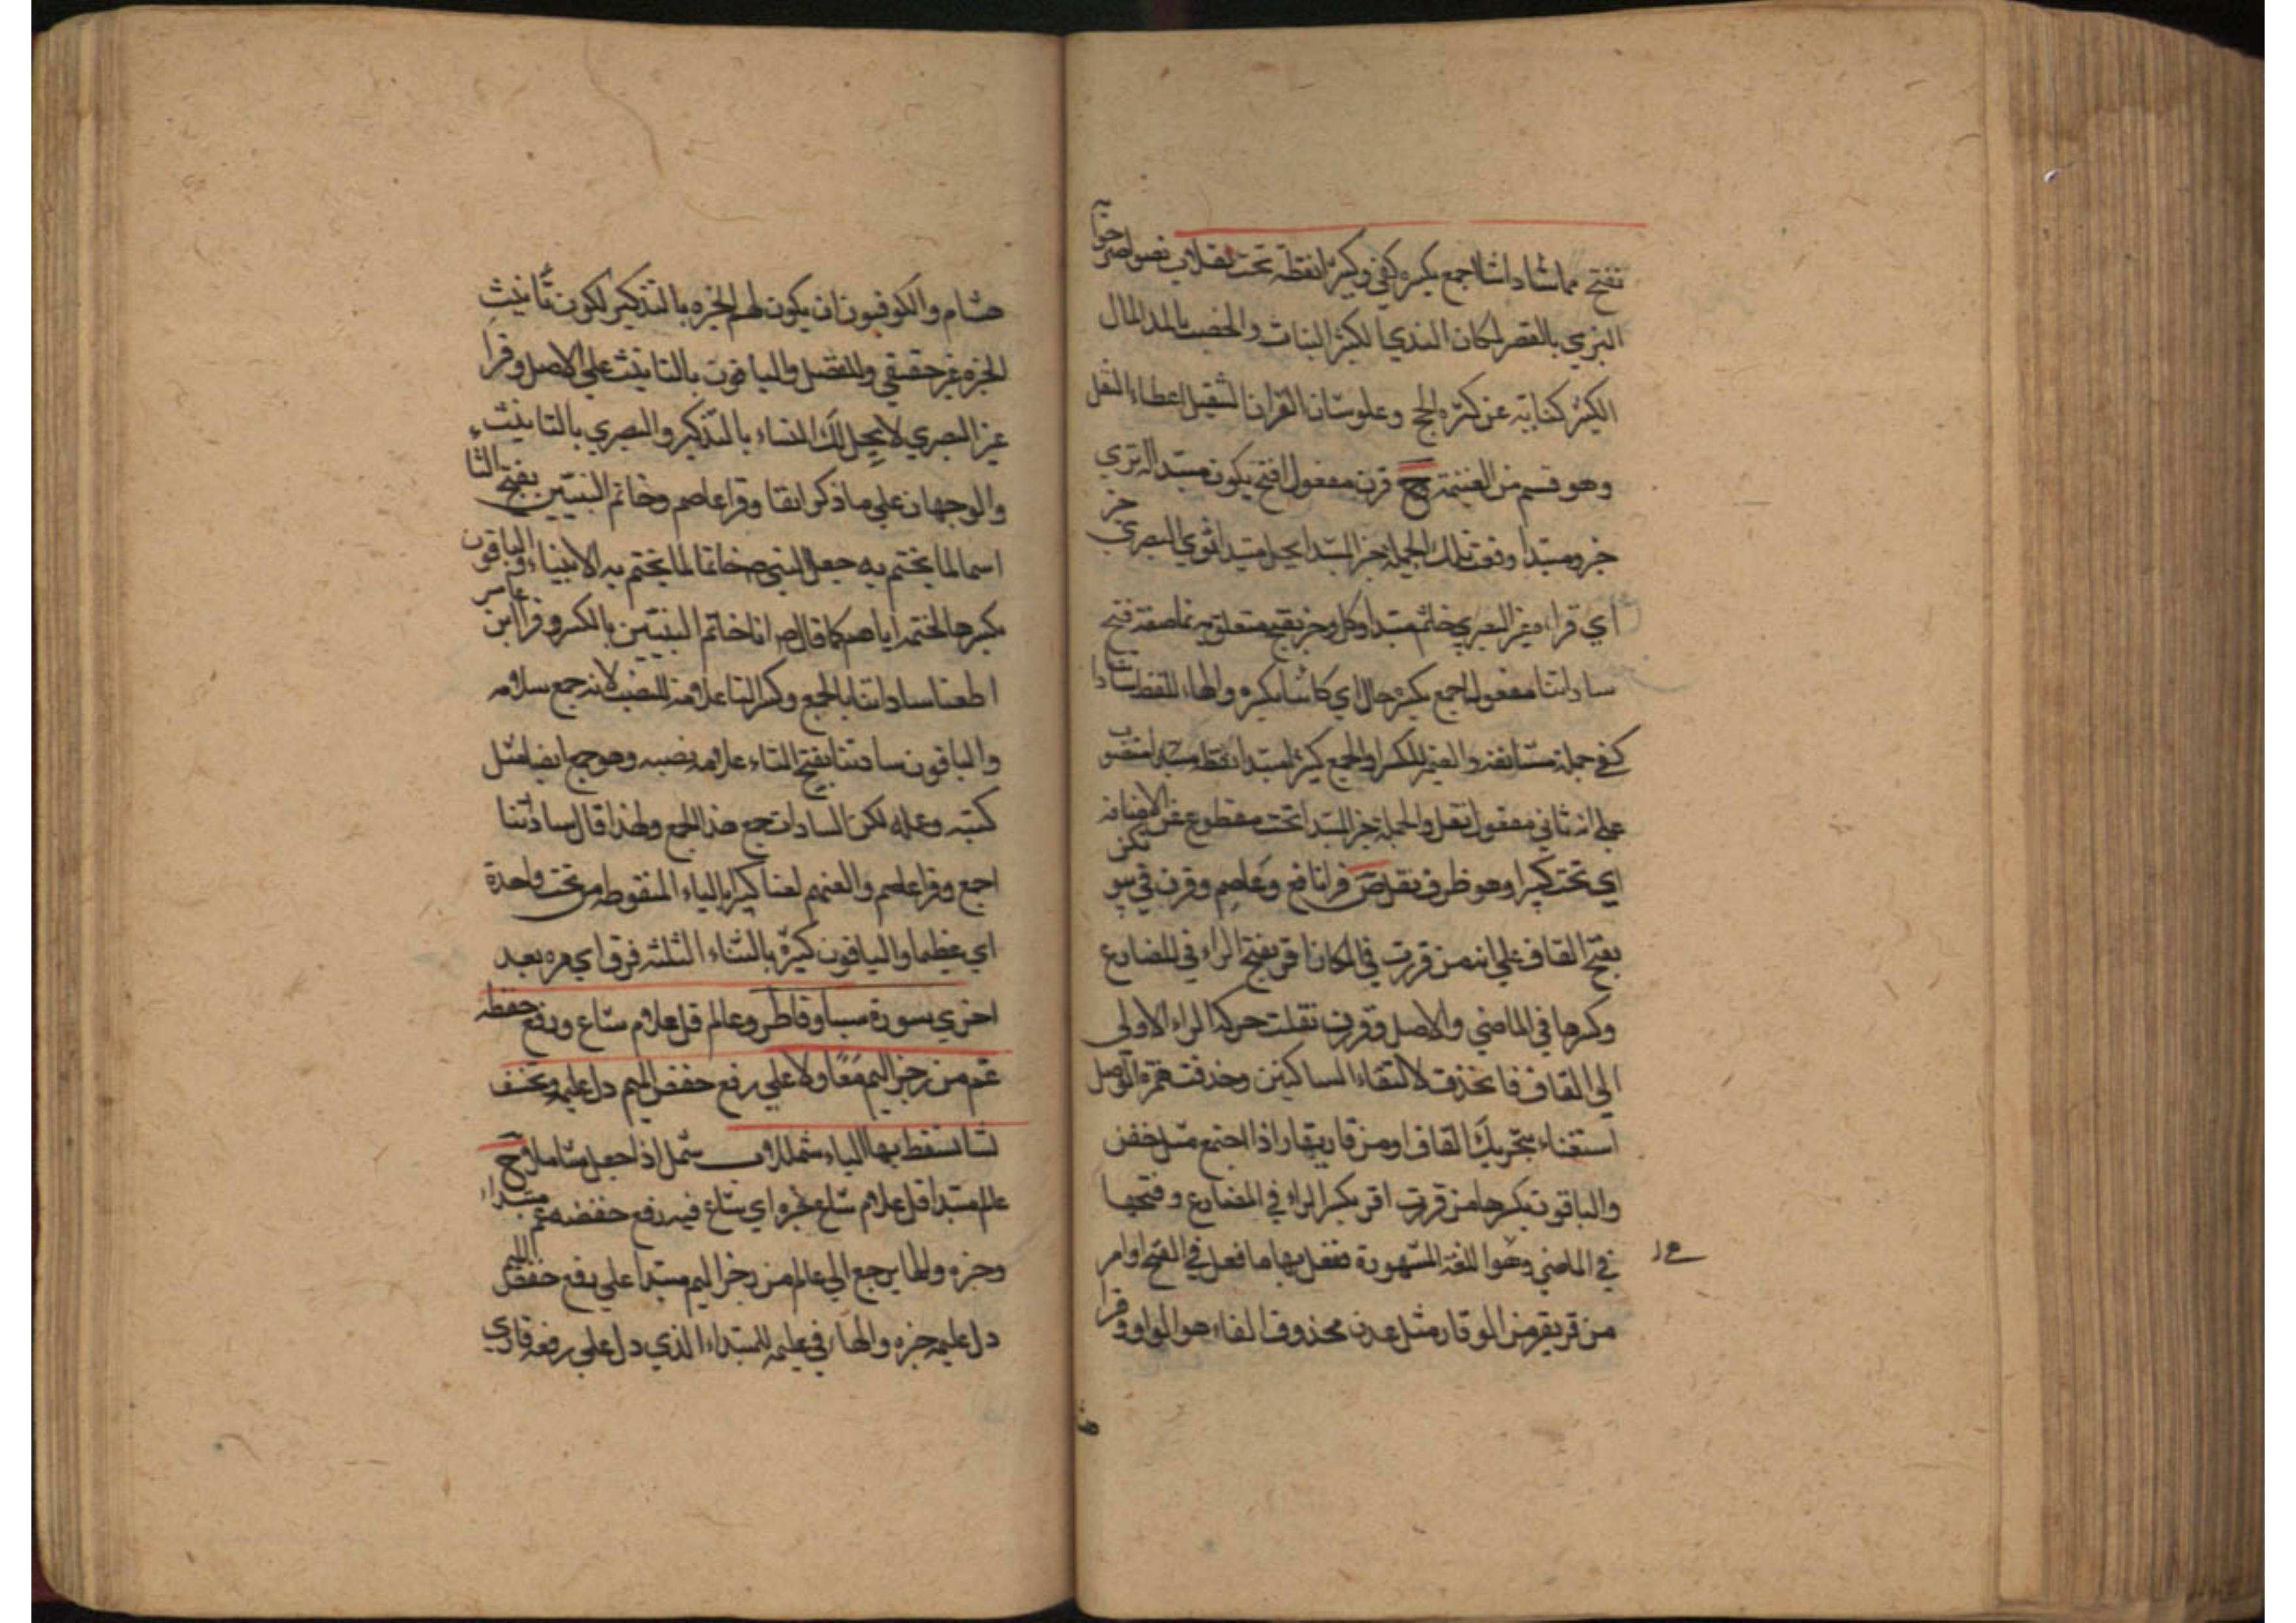 بفتح نما ساداتنا اجمع بكسره كفى وكثيرا نقطة تحت نفلا ب نص
الثري بالقصر المكان الندي الكثير النبات والخصب بالمد المال
الكثير كناية عن كثرة الحج وعلو شان القران التنفيل اعطاء النفل
وهو قسم من الغنيمة ح قرن مفعول افتح يكون مبتدا له ثرى
خبر ومبتدا وقعت تلك الجملة خبر المبتدا يحل مبتدا ثوى البصري خبر
اي قراءة غير البصري خاتم مبتدا وكل وخبر بفتح متعلق به نما صفة فتح
ساداتنا مفعول اجمع بكسره حال اي كائنا بكسره والهاء للفظ ساداتنا
كفى جملة مستانفة والضمير للكسر او الجمع كثيرا مبتدا نقطة
على انه ثاني مفعول نفل والجملة خبر المبتدا تحت مقطوع عن الاضافة
اي تحت كثيرا وهو ظرف نفل ص قرا نافع وعاصم وقرن في بيوتكن
بفتح القاف على انه من قررت في المكان اقر بفتح الراء في المضارع
وكسرها في الماضي والاصل وقررن نقلت حركة الراء الاولى
الى القاف فانحذفت لالتقاء الساكنين وحذفت همزة الوصل
استغناء بتحريك القاف او من قار يقار اذا اجتمع مثل خفن
والباقون بكسرها من قررت اقر بكسر الراء في المضارع وفتحها
في الماضي وهو اللغة المشهورة ففعل بها ما فعل في الفتح او امر
من قر يقر من الوقار مثل عدن محذوف الفاء هو الواو وقرا
هشام والكوفيون ان يكون لهم الخيرة بالتذكير لكون تانيث
الخيرة غير حقيقي وللفصل والباقون بالتانيث على الاصل وقرا
غير البصري لا يحل لك النساء بالتذكير والبصري بالتانيث
والوجهان على ما ذكر انفا وقرا عاصم وخاتم النبيين بفتح التاء
اسما لما يختم به جعل النبي ص خاتما لما يختم به الانبياء والباقون
بكسرها لختمه اياهم كما قال ص انا خاتم النبيين بالكسر وقرا ابن عامر
اطعنا ساداتنا بالجمع وكسر التاء علامة للنصب لانه جمع سلامة
والباقون سادتنا بفتح التاء علامة نصبه وهو جمع ايضا مثل
كتبة وعملة لكن السادات جمع هذا الجمع ولهذا قال ساداتنا
اجمع وقرا عاصم والعنهم لعنا كبيرا بالياء المنقوطة من تحت واحدة
اي عظيما والباقون كثيرا بالثاء الثلثة فرق اي مرة بعد
اخرى سورة سبا وفاطر وعالم قل علام شاع ورفع خفضه
عم من رجز اليم معا ولا على رفع خفض الميم دل عليمه ونخسف
نشا نسقط بها الياء شمللا ب شمل اذا جعل شاملا ح
عالم مبتدا قل علام شاع خبره اي شاع فيه رفع خفضه عم مبتدا
وخبره والهاء يرجع الى عالم من رجز اليم مبتدا على رفع خفض الميم
دل عليمه خبره والهاء في عليمه للمبتداء الذي دل على رفعه قاري